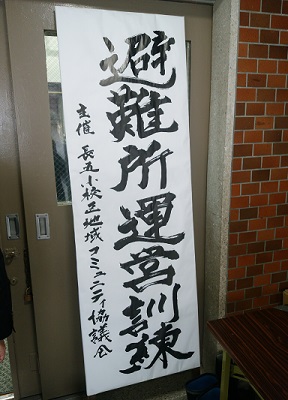 避難所運営訓練
主催 長五小校区地域コミュニティ協議会